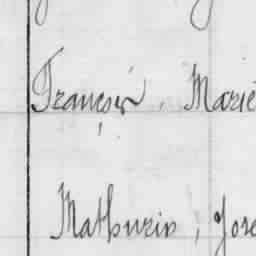 François, Marie
Mathurin, Jose